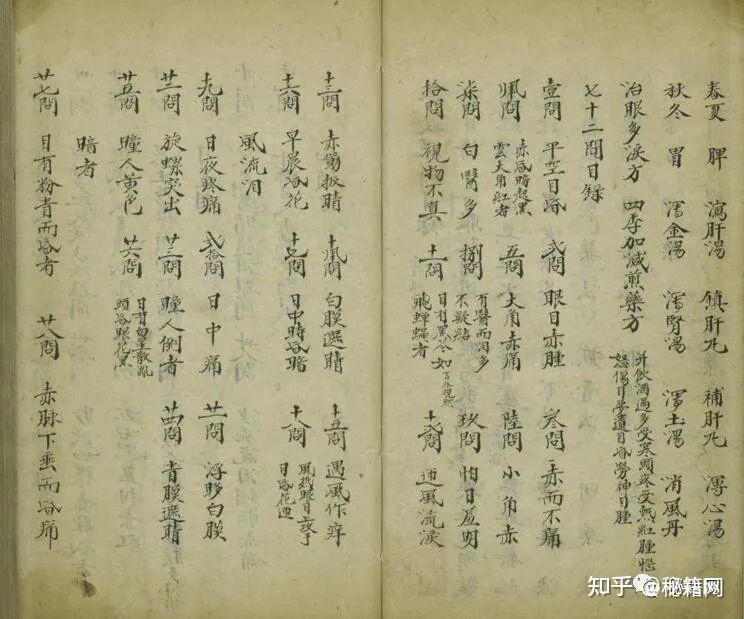 春夏 脾 瀉肝湯 鎮肝丸 補肝丸 瀉心湯
秋冬 胃 瀉金湯 瀉腎湯 瀉土湯 消風丹
治眼多淚方 四季加減煎藥方 并飲酒過多受寒頭疼受熱紅腫惱怒傷目夢遺目昏勞神目腫
七十二問目錄
壹問 平空目昏 弍問 眼目赤腫 叁問 赤而不痛
肆問 赤昏暗起黑雲大角紅者 五問 大角赤痛 陸問 小角赤
柒問 白翳多 捌問 有翳而泪多不疑結 玖問 怕日羞明
拾問 視物不真 十一問 目有黑花如飛蟬蠅者 十二問 迎風流淚
十三問 赤筋扳睛 十四問 白膜遮睛 十五問 遇風作痒
十六問 早晨昏花 十七問 日中時昏暗 十八問 風熱眼目交于目昏花迎
風流泪
十九問 日夜疼痛 弍拾問 日中痛 廿一問 浮眵白膜
廿二問 旋螺突出 廿三問 瞳人倒者 廿四問 青膜遮睛
廿五問 瞳人黄色 廿六問 目有如星散亂頭昏眼花黑
暗者
廿七問 目有粉青而昏者 廿八問 赤脉下垂而昏痛
知乎 @秘籍网